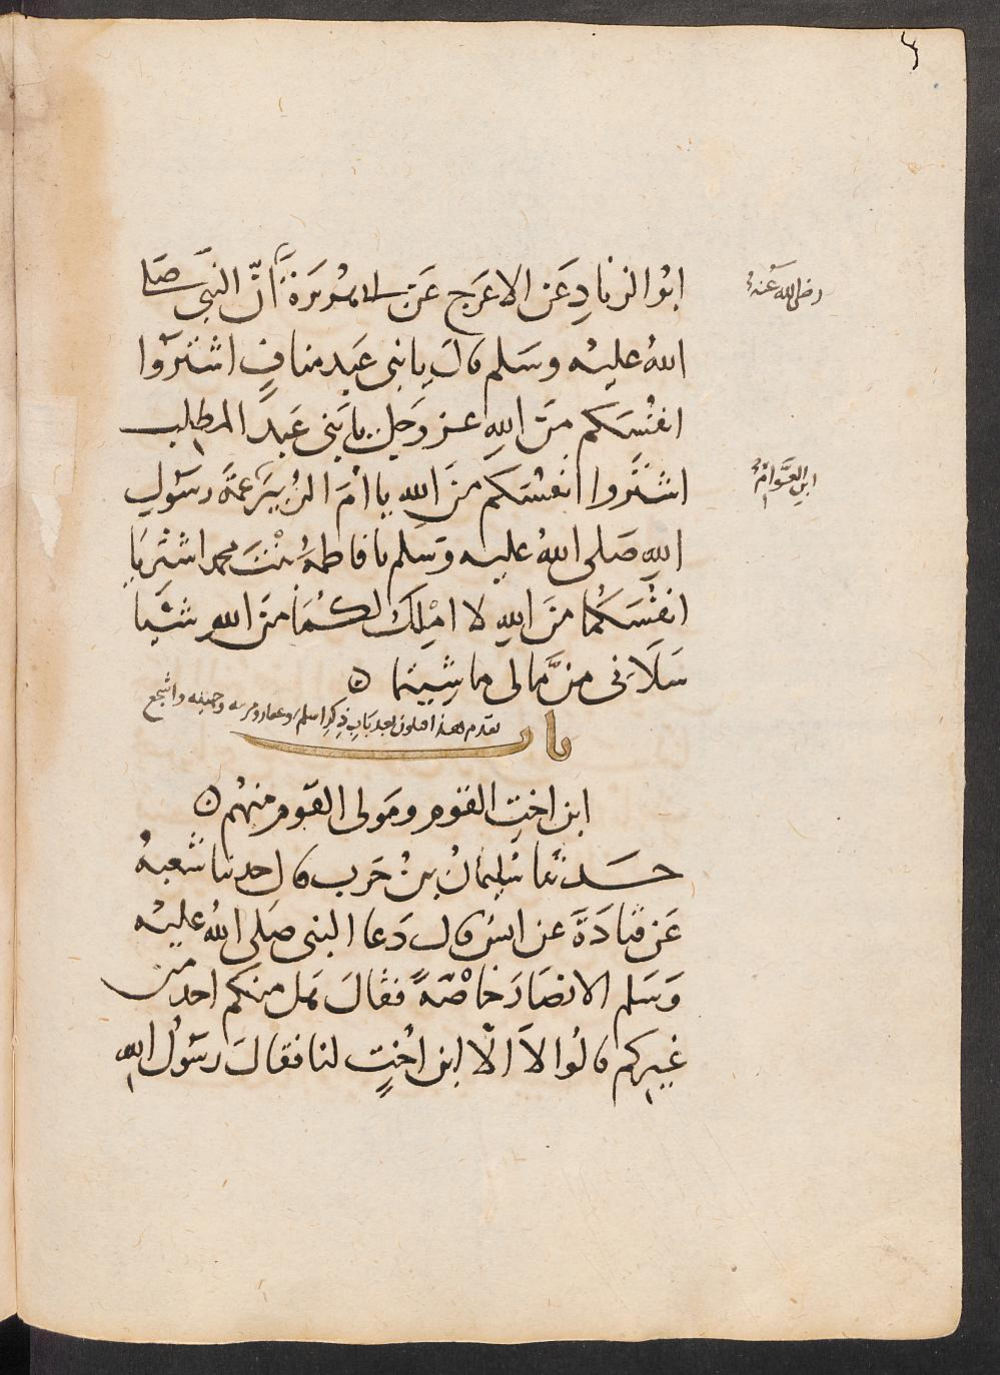 ابُو الزنادِ عَن الاعرَج عَن ابى هُرَيرَةَ انّ النبىَّ صَلى
رضى الله عنهُ
اللهُ عليهِ وسَلم قالَ يا بنى عَبد منافٍ اشتَرُوا
انفُسَكم مِنَ اللهِ عز وَجل يا بَنى عَبد المطلب
اشتَروا انفسَكم منَ اللهِ يا اُمَ الزُبيَر عمَّة رسَول
ابن العَوَّامِ
اللهِ صَلى اللهُ عليه وَسلم يا فاطمةُ بنْتَ محمد اشتريَا
انفُسَكُما مِنَ اللهِ لا امْلِكُ لكُمَا منَ اللهِ شيَا
سَلَانِى من مَّالى ما شِيتما ه
تقدم هذا الحديث بعد بَاب ذِكر اسلم وغفار ومزينه وجهينه واشجع
باب
ابن اختِ القوم ومَولى القوم منهُم ه
حَدثنا سُليمانُ بنُ حَرب قال حدثنا شعبهُ
عَن قتادَةَ عن انسٍ قال دَعا النبى صَلى اللهُ عليهِ
وَسَلم الانصَارَ خاصّةً فقالَ هَل منكم احد من
غيركم قالُوا لاَ الّا ابن اُختٍ لنا فقالَ رسَولُ اللهِ